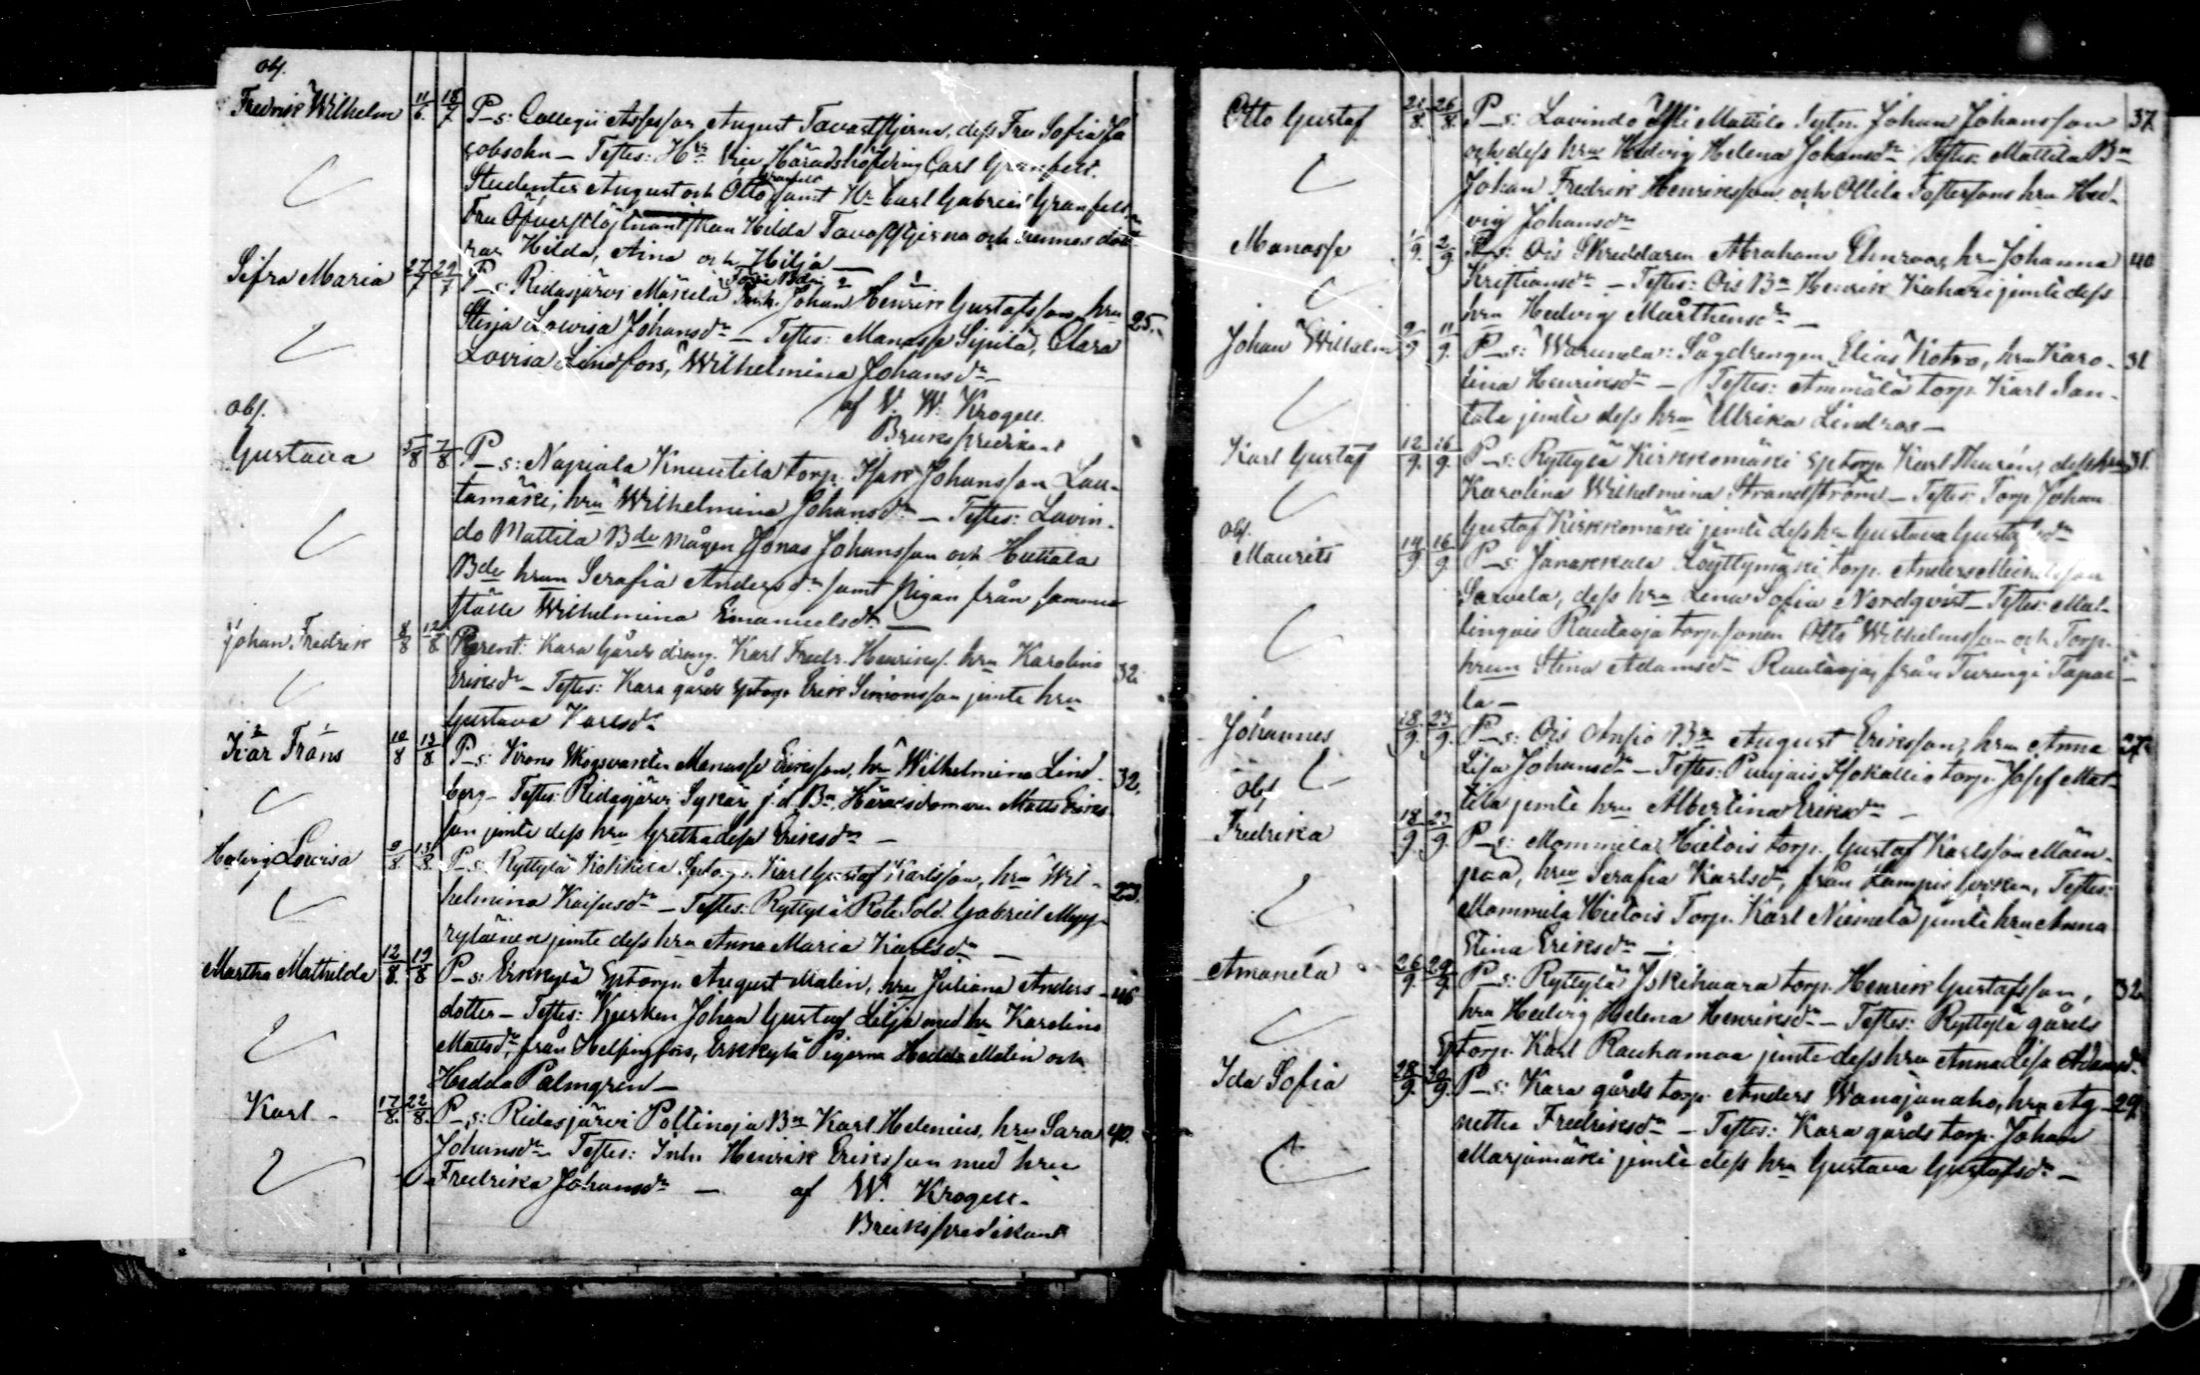 obs.
Fredrik Wilhelm 11/6. 18/7 P_s: Collegii Assessor August Tavaststjerna, dess Fru Sofia Ja
cobsohn — Testes: Hrr Vice Häradshöfding Carl Granfelt.
Studentes August och Otto Granfelt samt Hr Carl Gabriel Granfelt
Fru Öfverstlöjtnantskan Hilda Tavaststjerna och hennes dött
rar Hilda, Aina och Hilja —
Sifra Maria 27/7 29/7 P_s: Ridasjärvi Mäkelä Torp Johan Henrik Gustafsson, hru 25.
Stina Lovisa Johansdr — Testes: Manasse Sipilä, Clara
Lovisa Lindfors, Wilhelmina Johansdr —
af V. W. Krogell
Brukspredikant
obs.
Gustava 5/8 7/8 P_s: Napiala Knuutila torp. Isak Johansson Lau-
tamäki, hru Wilhelmina Johansdr — Testes: Lavin-
do Mattila Bde mågen Jonas Johansson och Huttala
Bde hrun Serafia Andersdr samt Pigan från samma
ställe Wilhelmina Emanuelsdr —
Johan Fredrik 8/8 12/8 Parent: Kara Gårds dräng. Karl Fredr. Henrikss. hru Karolina 32.
Eriksdr — Testes: Kara gårds Sptorp Erik Simonsson jemte hru
Gustava Karlsdr
Ivar Frans 10/8 13/8 P_s: Krono Skogsvakten Manasse Eriksson, hru Wilhelmina Lind- 32.
berg — Testes: Ridasjärvi Sykäri f.d. Bn. Häradsdomaren Matts Eriks-
son jemte dess hru Gretha Lisa Eriksdr —
Hedvig Lovisa 9/8. 13/8. P_s: Ryttylä Kokkila Sptorp. Karl Gustaf Karlsson, hru Wil- 23.
helmina Kaisasdr — Testes: Ryttylä Rote Sold. Gabriel Myy-
ryläinen jemte dess hru Anna Maria Karlsdr —
Martha Mathilda 12/8. 19/8 P_s: Erkkylä Sptorp. August Malin, hru Juliana Anders- 46
dotter — Testes: Kusken Johan Gustaf Lilja med hr Karolina
Mattsdr, från Helsingfors, Erkkylä Pigorna Hedda Malin och
Hedda Palmgren —
Karl — 17/8. 22/8. P_s: Ridasjärvi Poltinoja Bn Karl Helenius, hru Sara 40.
Johansdr Testes: Inh. Henrik Eriksson med hru
Fredrika Johansdr — af W. Krogell
Brukspredikant
Otto Gustaf 21/8. 26/8. P_s: Lavindo Ylli Mattila Sytn. Johan Johansson 37.
och dess hru Hedvig Helena Johansdr Testes: Mattila Bn
Johan Fredrik Henriksson och Ollila Testersons hru Hed-
vig Johansdr
Manasse 1/9. 2/9 P_s: Ois Skreddaren Abraham Elmroos, hr Johanna 40
Kristiansdr — Testes: Ois Bn Henrik Kahari jemte dess
hru Hedvig Mårthensdr —
Johan Wilhelm 9/9 11/9. P_s: Warunda: Sågdrengen Elias Kotro, hru Karo- 31
lina Henriksdr — Testes: Ammälä torp. Karl San-
tala jemte dess hru Ulrika Lindroos —
Karl Gustaf 12/9. 16/9. P_s: Ryttylä Kirkkomäki Sptorp. Karl Thurén, dess hru 31.
Karolina Wilhelmina Strandström — Testes: Torp. Johan
Gustaf Kirkkomäki jemte dess hr Gustava Gustafsdr
obs.
Maurits 14/9 16/9. P_s: Janakkala Löyttymäki torp. Anders Michelsson
Sarvela, dess hru Lena Sofia Nordqvist — Testes: Mal-
lingais Rautaoja torp. sonen Otto Wilhelmsson och Torp.
hrun Stina Adamsdr Rautaoja, från Turengi Tapai-
la —
Johannes 18/9. 23/9. P_s: Ois Ansio Bn August Eriksson, hru Anna 27.
Lisa Johansdr — Testes: Puujais Isokallio torp. Josef Mat-
tila jemte hru Albertina Eriksdr —
obs
Fredrika 18/9. 23/9. P_s: Mommila Hietois torp. Gustaf Karlsson Mäen-
pää, hru Serafia Karlsdr, från Lampis socken, Testes:
Mommila Hietois Torp. Karl Niemelä jemte hru Anna
Stina Eriksdr —
Amanda 26/9. 29/9. P_s: Ryttylä Iskihaara torp. Henrik Gustafsson, 32
hru Hedvig Helena Henriksdr — Testes: Ryttylä gårds
Sptorp. Karl Rauhamaa jemte dess hru Anna Lisa Adamsdr.
Ida Sofia 28/9. 30/9. P_s: Kara gårds torp. Anders Wanajanaho, hru Ag- 29.
netha Fredriksdr — Testes: Kara gårds torp. Johan
Marjamäki jemte dess hru Gustava Gustafsdr —